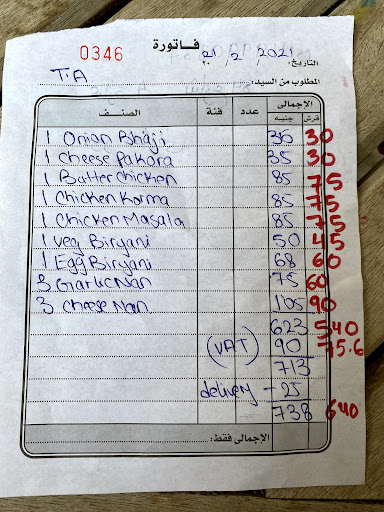 فاتورة
0346
التاريخ: 21/2/2021
T.A
المطلوب من السيد:
الصنف فئة عدد الإجمالى
جنيه قرش
1 Onion Bhaji 35 30
1 Cheese Pakora 35 30
1 Butter Chicken 85 75
1 Chicken Korma 85 75
1 Chicken Masala 85 75
1 Veg Biryani 50 45
1 Egg Biryani 68 60
3 Garlic Nan 75 60
3 Cheese Nan 105 90
623 540
(VAT) 90 75.6
713
delivery - 25
738 640
الإجمالى فقط: